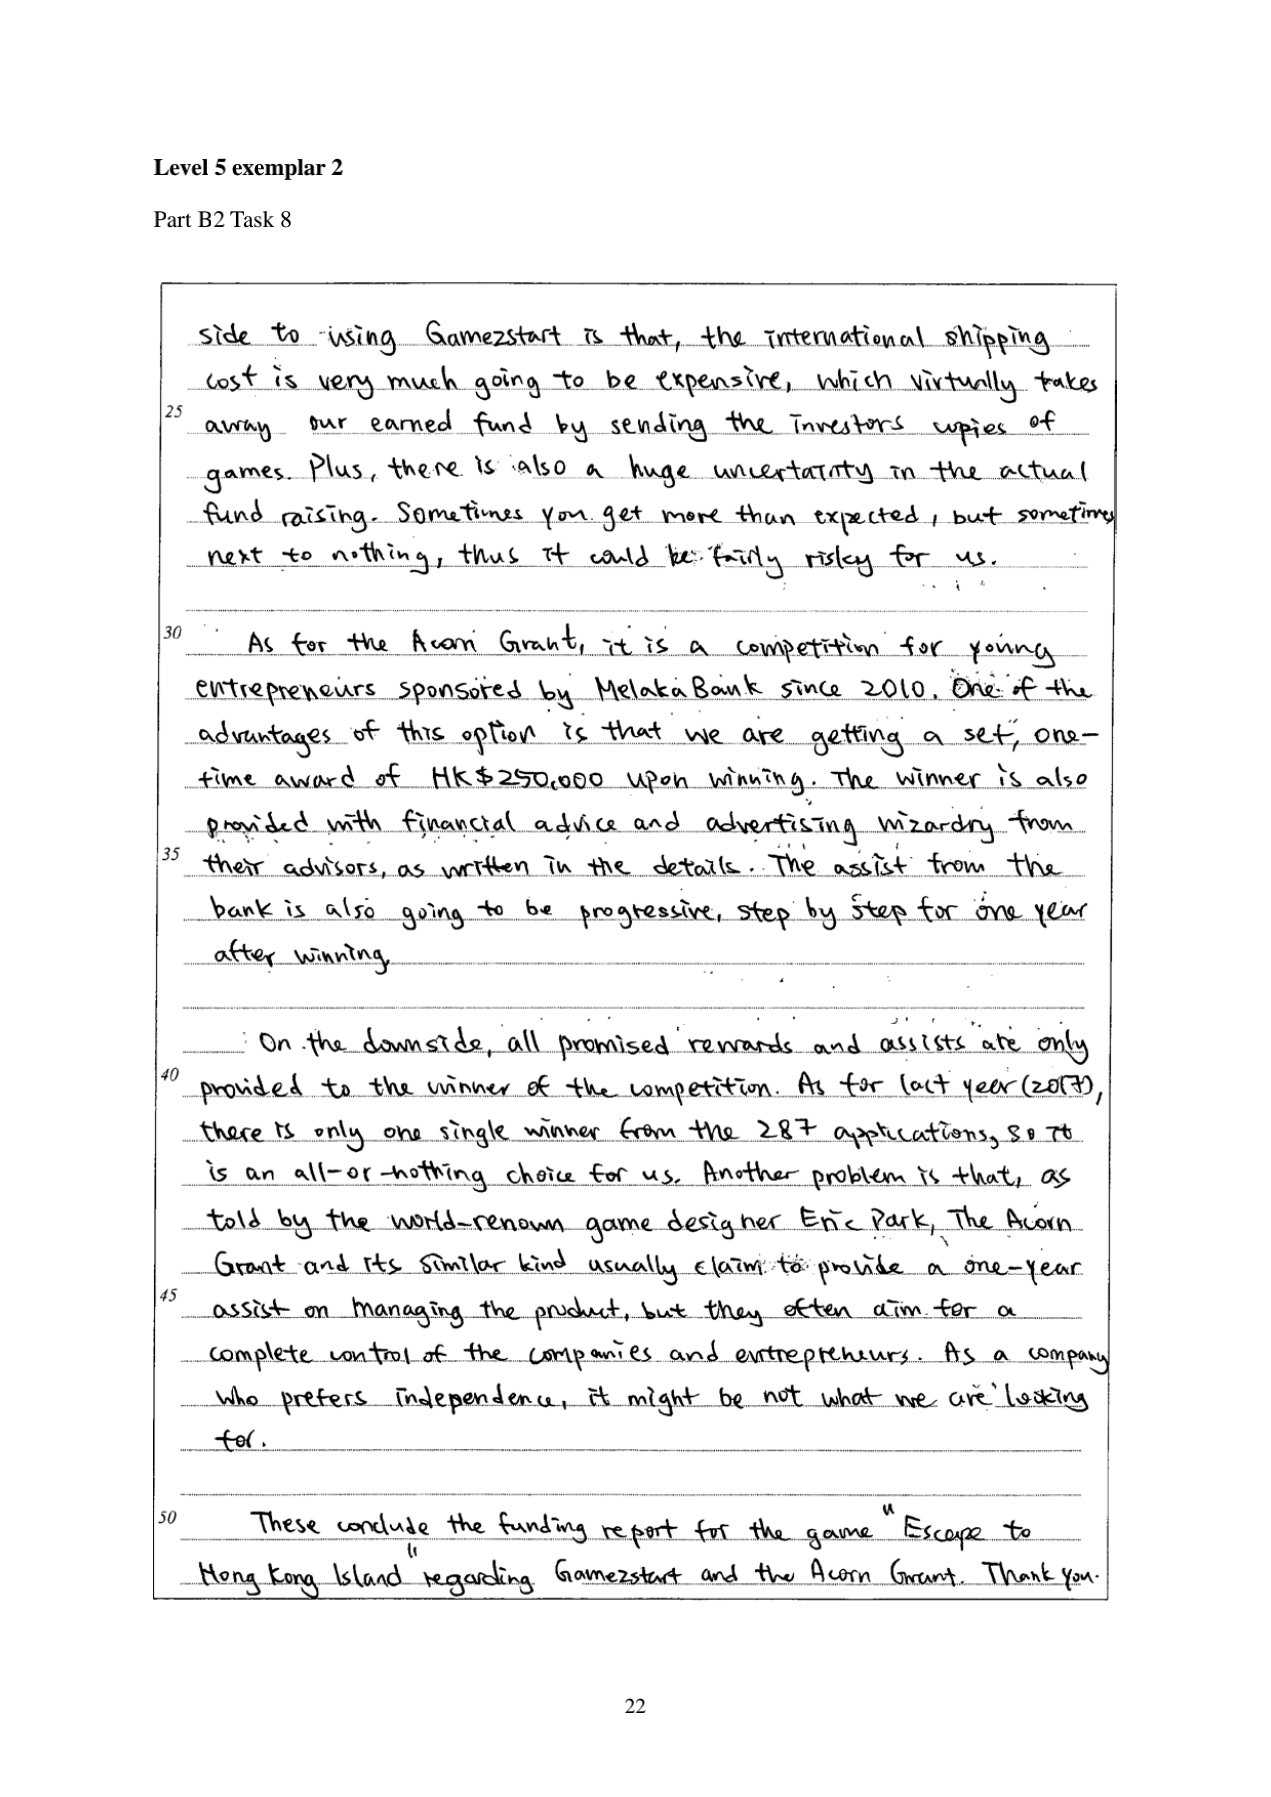 Level 5 exemplar 2
Part B2 Task 8
side to using Gamezstart is that, the international shipping
cost is very much going to be expensive, which virtually takes
25 away our earned fund by sending the investors copies of
games. Plus, there is also a huge uncertainty in the actual
fund raising. Sometimes you get more than expected, but sometimes
next to nothing, thus it could be fairly risky for us.
30 As for the Acorn Grant, it is a competition for young
entrepreneurs sponsored by Melaka Bank since 2010. One of the
advantages of this option is that we are getting a set, one-
time award of HK$250,000 upon winning. The winner is also
provided with financial advice and advertising wizardry from
35 their advisors, as written in the details. The assist from the
bank is also going to be progressive, step by step for one year
after winning.
On the downside, all promised rewards and assists are only
40 provided to the winner of the competition. As for last year (2017),
there is only one single winner from the 287 applications, so it
is an all-or-nothing choice for us. Another problem is that, as
told by the world-renown game designer Eric Park, The Acorn
Grant and its similar kind usually claim to provide a one-year
45 assist on managing the product, but they often aim for a
complete control of the companies and entrepreneurs. As a company
who prefers independence, it might be not what we are looking
for.
50 These conclude the funding report for the game "Escape to
Hong Kong Island" regarding Gamezstart and the Acorn Grant. Thank you.
22